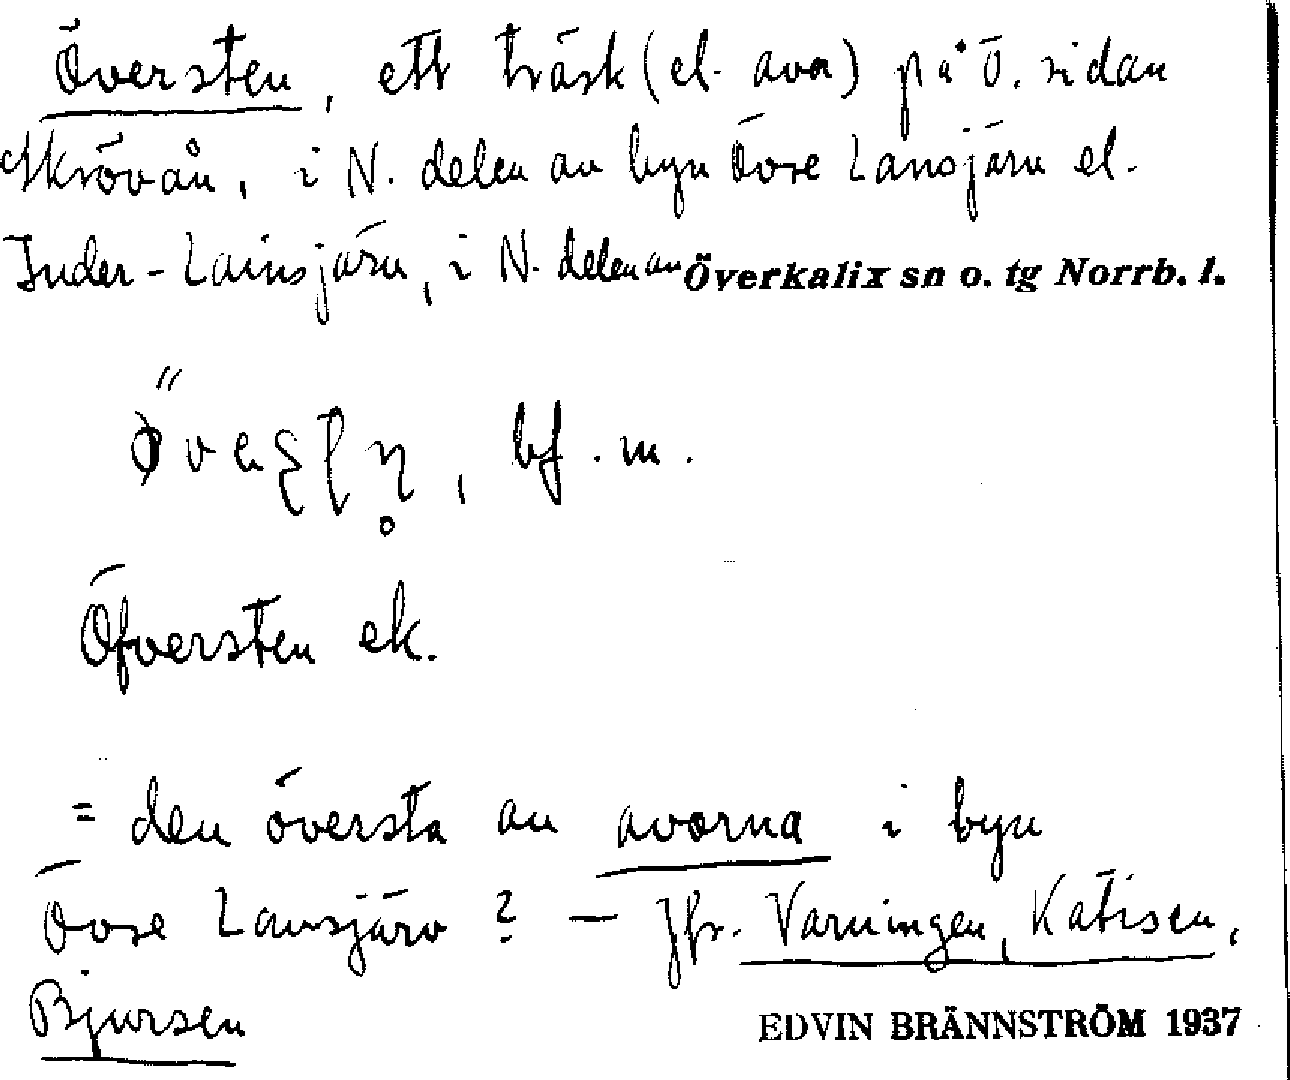 Översten, ett träsk (el. ava) på Ö. sidan
Skrövån, i N. delen av byn Övre Lansjärv el.
Inder-Lainsjärv, i N. delen av Överkalix sn o. tg Norrb. l.
bf. m.
Öfversten ek.
= den översta av avorna i byn
Övre Lansjärv? — Jfr. Varningen, Kätisen,
Bjursen
EDVIN BRÄNNSTRÖM 1937